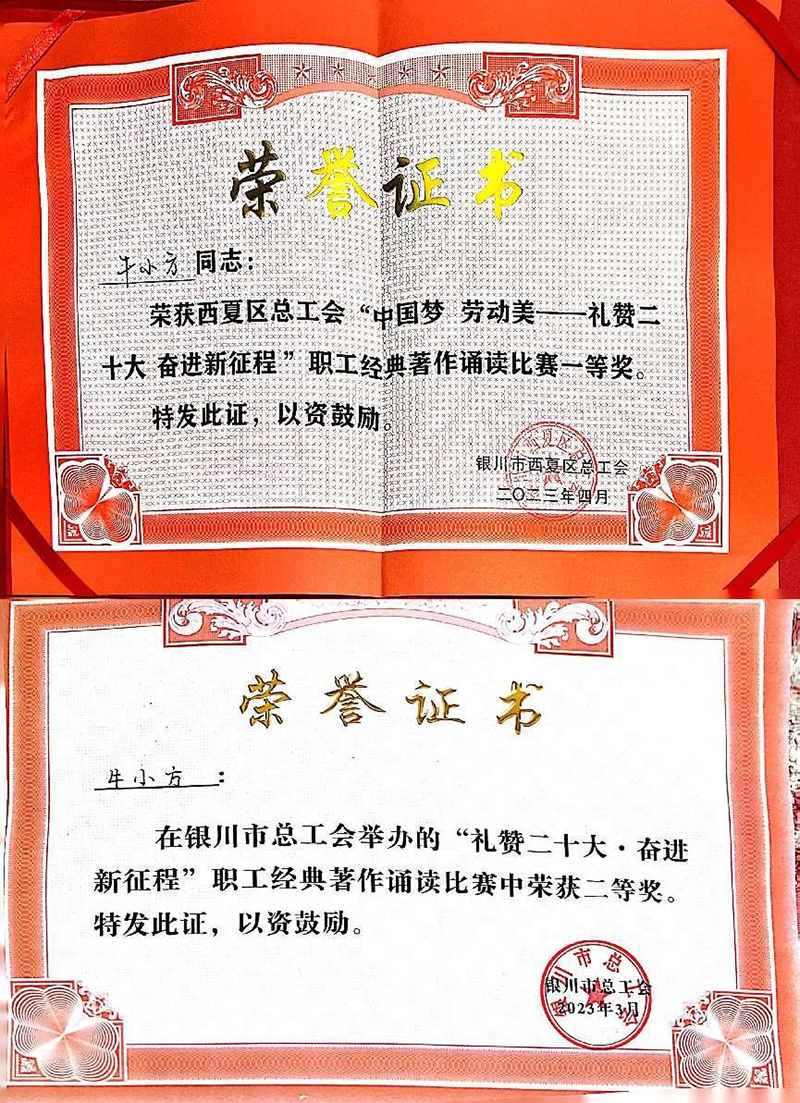 荣誉证书
牛小方同志：
荣获西夏区总工会“中国梦 劳动美——礼赞二
十大 奋进新征程”职工经典著作诵读比赛一等奖。
特发此证，以资鼓励。
银川市西夏区总工会
二〇二三年四月
荣誉证书
牛小方：
在银川市总工会举办的“礼赞二十大·奋进
新征程”职工经典著作诵读比赛中荣获二等奖。
特发此证，以资鼓励。
银川市总工会
2023年3月